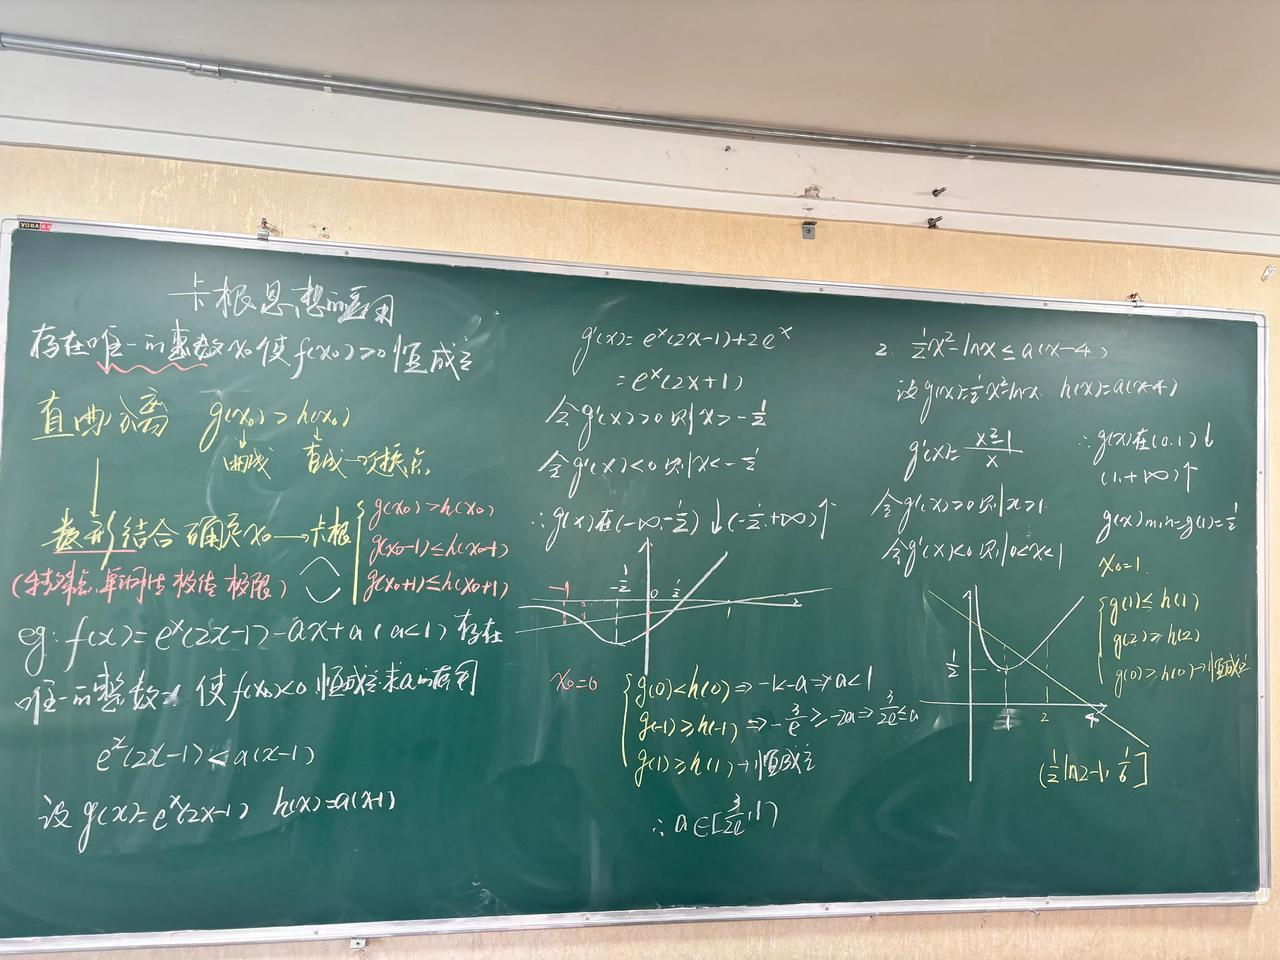 YOBA
卡根思想的应用
存在唯一的整数x₀使f(x₀)>0恒成立
直曲分离 g(x₀)>h(x₀)
曲线 直线→过定点
数形结合确定x₀→卡根
(特殊点.单调性 极值 极限)
g(x₀)>h(x₀)
g(x₀-1)≤h(x₀-1)
g(x₀+1)≤h(x₀+1)
eg: f(x)=eˣ(2x-1)-ax+a (a<1) 存在
唯一的整数 使f(x₀)<0恒成立求a的范围
eˣ(2x-1)<a(x-1)
设g(x)=eˣ(2x-1) h(x)=a(x-1)
g'(x)=eˣ(2x-1)+2eˣ
=eˣ(2x+1)
令g'(x)>0 则x>-1/2
令g'(x)<0 则x<-1/2
∴g(x)在(-∞,-1/2)↓(-1/2,+∞)↑
-1 -1/2 0 1/2 1
x₀=0
g(0)<h(0)⇒-1<-a⇒a<1
g(-1)≥h(-1)⇒-3/e≥-2a⇒3/2e≤a
g(1)≥h(1)→恒成立
∴a∈[3/2e,1)
2. 1/2x²-lnx≤a(x-4)
设g(x)=1/2x²-lnx h(x)=a(x-4)
g'(x)=x²-1/x
令g'(x)>0 则x>1
令g'(x)<0 则0<x<1
∴g(x)在(0,1)↓
(1,+∞)↑
g(x)min=g(1)=1/2
x₀=1.
g(1)≤h(1)
g(2)>h(2)
g(0)>h(0)→恒成立
1/2 1 2 4
(1/2ln2-1,-1/6]